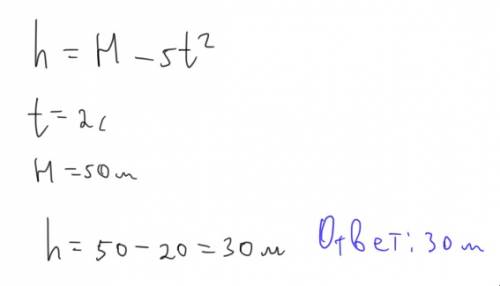 h = H - 5t²
t = 2с
H = 50м
h = 50 - 20 = 30м Ответ: 30м